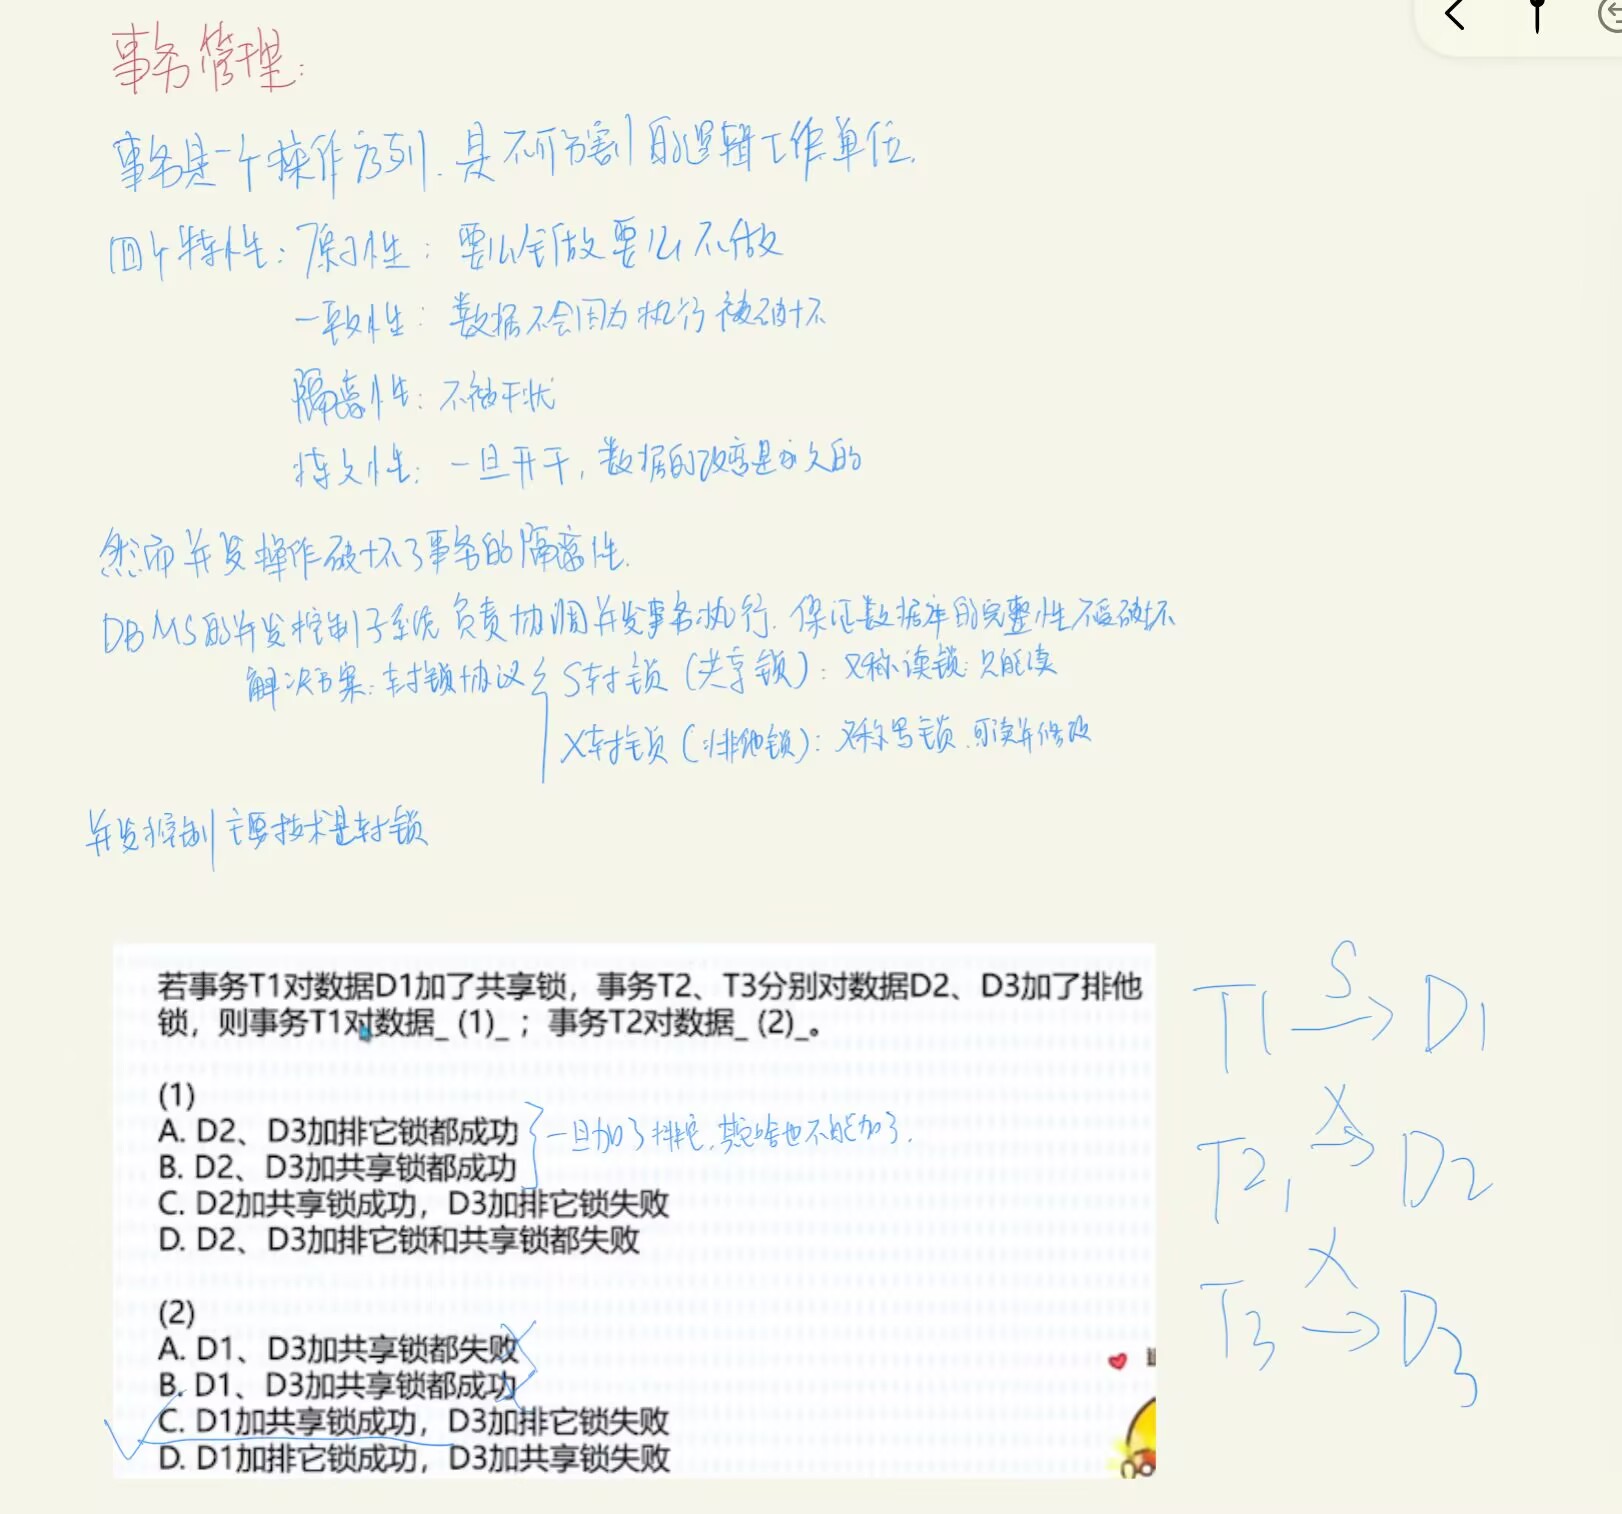 事务管理:
事务是一个操作序列.是不可分割的逻辑工作单位.
四个特性:原子性:要么全做要么不做
一致性:数据不会因为执行被破坏
隔离性:不被干扰
持久性:一旦开干,数据的改变是永久的
然而并发操作破坏了事务的隔离性.
DBMS的并发控制子系统负责协调并发事务执行.保证数据库的完整性不受破坏
解决方案:封锁协议{S封锁(共享锁):又称读锁:只能读
X封锁(排他锁):又称写锁.可读并修改
并发控制主要技术是封锁
若事务T1对数据D1加了共享锁，事务T2、T3分别对数据D2、D3加了排他
锁，则事务T1对数据_ (1)_ ；事务T2对数据_ (2)_。
(1)
A. D2、D3加排它锁都成功
B. D2、D3加共享锁都成功
C. D2加共享锁成功，D3加排它锁失败
D. D2、D3加排它锁和共享锁都失败
一旦加了排它.其它啥也不能加了.
(2)
A. D1、D3加共享锁都失败
B. D1、D3加共享锁都成功
C. D1加共享锁成功，D3加排它锁失败
D. D1加排它锁成功，D3加共享锁失败
T1 S→ D1
T2 X→ D2
T3 X→ D3